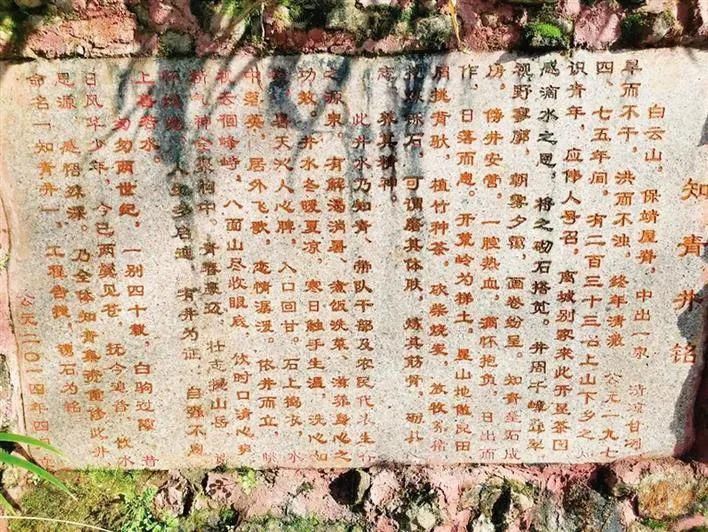 知青井铭
白云山，保靖屋脊，中出一泉，清凉甘冽
旱而不干，洪而不浊，终年清澈。公元一九七
四、七五年间，有二百三十三名上山下乡之知
识青年，应伟人号召，离城别家来此开垦茶园
感滴水之恩，将之砌石搭苋。井周千嶂
视野寥廓，朝雾夕霭，画卷纷呈。知青垒石成
房，傍井安营。一腔热血，满怀抱负，日出而
作，日落而息。开荒岭为梯土，垦山地做良田
肩挑背驮，植竹种茶。砍柴烧炭，放牧养猪
烁石，可谓磨其体肤，炼其筋骨，砺其心
志，养其精神。
此井水乃知青、带队干部及农民代表生
之源泉。有解渴消暑、煮饭洗菜、滋养身心之
功效。井水冬暖夏凉，寒日触手生温，洗心如
，暑天沁人心脾，入口回甘。石上捣衣，水
中落英，居外飞歌，恋情潺湲。依井而立，眺
峰峙，八面山尽收眼底。伏时口清心爽
气神全聚相中。青春豪迈，壮志撼山岳
人生多启迪，青井为证：自强不息
上善若水。
匆匆两世纪，一别四十载，白驹过隙，昔
日风华少年，今已两鬓见苍，抚今追昔，饮水
思源，感悟殊深。乃全体知青集资重修此井
命名「知青井」，工程告捷，镌石为铭
公元二〇一四年四月